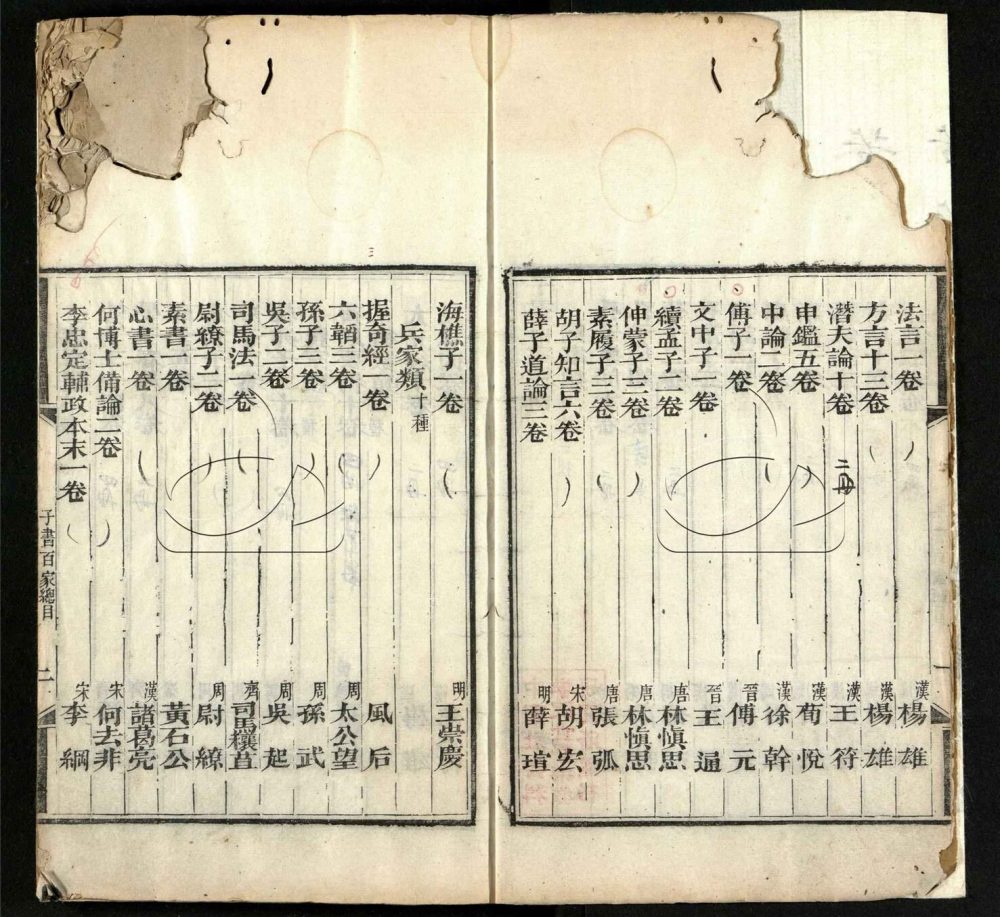 法言一卷 漢 楊雄
方言十三卷 漢 楊雄
潛夫論十卷 二冊 漢 王符
申鑑五卷 漢 荀悅
中論二卷 漢 徐幹
傅子一卷 晉 傅元
文中子一卷 晉 王通
續孟子二卷 唐 林慎思
伸蒙子三卷 唐 林慎思
素履子三卷 唐 張弧
胡子知言六卷 宋 胡宏
薛子道論三卷 明 薛瑄
海樵子一卷 明 王崇慶
兵家類十種
握奇經一卷 風后
六韜三卷 周 太公望
孫子三卷 周 孫武
吳子二卷 周 吳起
司馬法一卷 齊 司馬穰苴
尉繚子二卷 周 尉繚
素書一卷 黃石公
心書一卷 漢 諸葛亮
何博士備論二卷 宋 何去非
李忠定輔政本末一卷 宋 李綱
子書百家總目 二